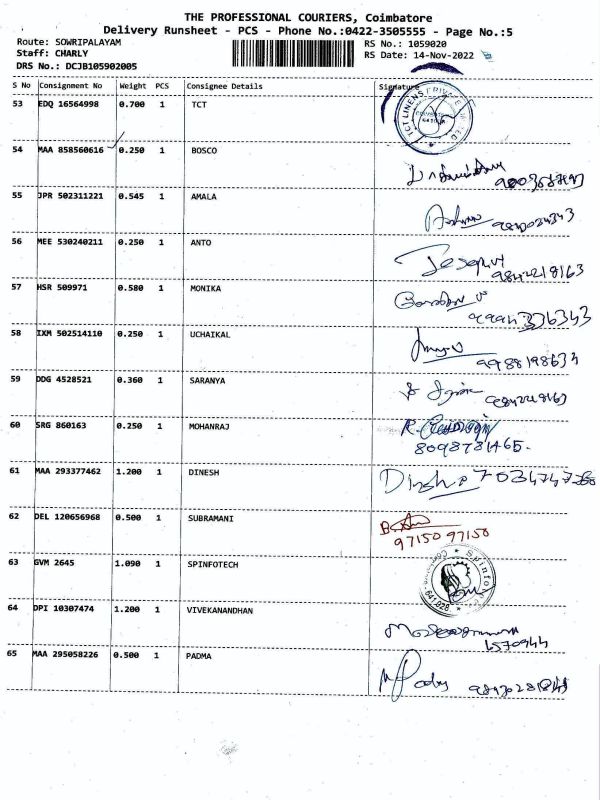 THE PROFESSIONAL COURIERS, Coimbatore
Delivery Runsheet - PCS - Phone No.:0422-3505555 - Page No.:5
Route: SOWRIPALAYAM
RS No.: 1059020
Staff: CHARLY
RS Date: 14-Nov-2022
DRS No.: DCJB105902005
S No Consignment No Weight PCS Consignee Details Signature
53 EDQ 16564998 0.700 1 TCT
TCT LINENS PRIVATE LIMITED
54 MAA 858560616 0.250 1 BOSCO
55 JPR 502311221 0.545 1 AMALA
56 MEE 530240211 0.250 1 ANTO
Joseph
9842218163
57 HSR 509971 0.580 1 MONIKA
9994336343
58 IXM 502514110 0.250 1 UCHAIKAL
9988198634
59 DDG 4528521 0.360 1 SARANYA
9842218163
60 SRG 860163 0.250 1 MOHANRAJ
8098781465.
61 MAA 293377462 1.200 1 DINESH
Dinesh
62 DEL 120656968 0.500 1 SUBRAMANI
97150 97150
63 GVM 2645 1.090 1 SPINFOTECH
Spinfotech Coimbatore 641 028
64 DPI 10307474 1.200 1 VIVEKANANDHAN
65 MAA 295058226 0.500 1 PADMA